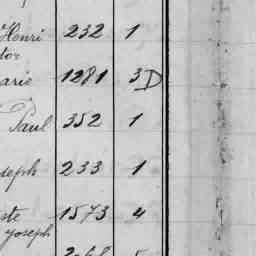 Henri 232 1
tor
arie 1281 3D
Paul 352 1
seph 233 1
ste 1573 4
Joseph